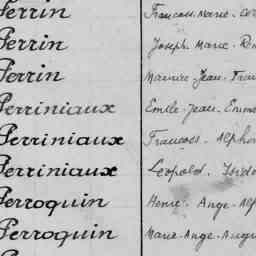 Perrin Francois-Marie-
Perrin Joseph Marie-
Perrin Maurice-Jean-
Perriniaux Emile-Jean-
Perriniaux Francois-
Perriniaux Leopold-
Perroquin Henri-Ange-
Perroquin Marie-Ange-